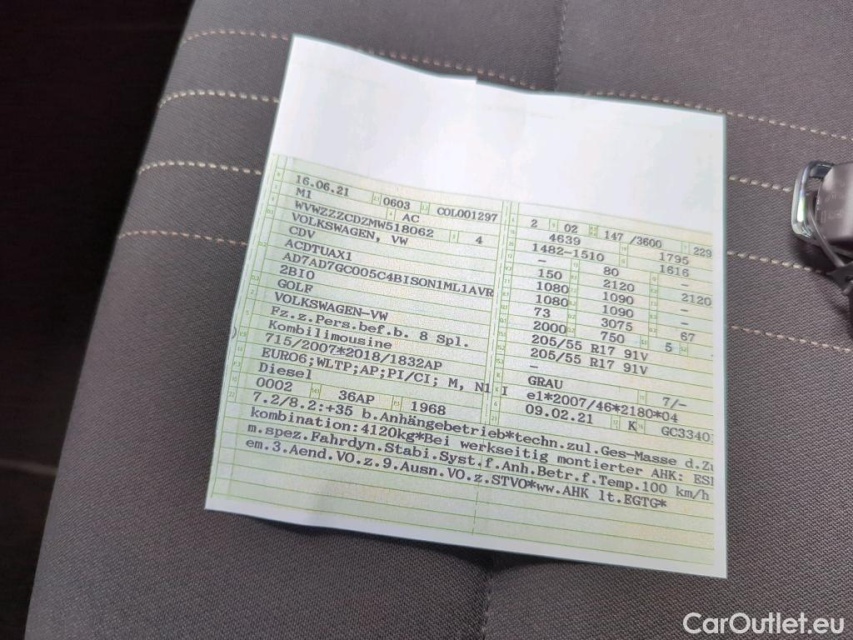 16.06.21 0603 COL001297 2 02 147 /3600 229
M1 AC 4639 1795
WVWZZZCDZMW518062 4 1482-1510 1616
VOLKSWAGEN, VW – – –
CDV 150 80 –
ACDTUAX1 1080 2120 2120
AD7AD7GC005C4BISON1ML1AVR 1080 1090 –
2BI0 73 3075 67
GOLF 2000 750 5
VOLKSWAGEN-VW 205/55 R17 91V
Fz.z.Pers.bef.b. 8 Spl. 205/55 R17 91V
Kombilimousine –
715/2007*2018/1832AP GRAU 7/–
EURO6;WLTP;AP;PI/CI; M, N1 I e1*2007/46*2180*04
Diesel 09.02.21 K GC3340
0002 36AP 1968
7.2/8.2:+35 b.Anhängebetrieb*techn.zul.Ges-Masse d.Zu
kombination:4120kg*Bei werkseitig montierter AHK: ES
m.spez.Fahrdyn.Stabi.Syst.f.Anh.Betr.f.Temp.100 km/h
em.3.Aend.VO.z.9.Ausn.VO.z.STVO*ww.AHK lt.EGTG*
CarOutlet.eu